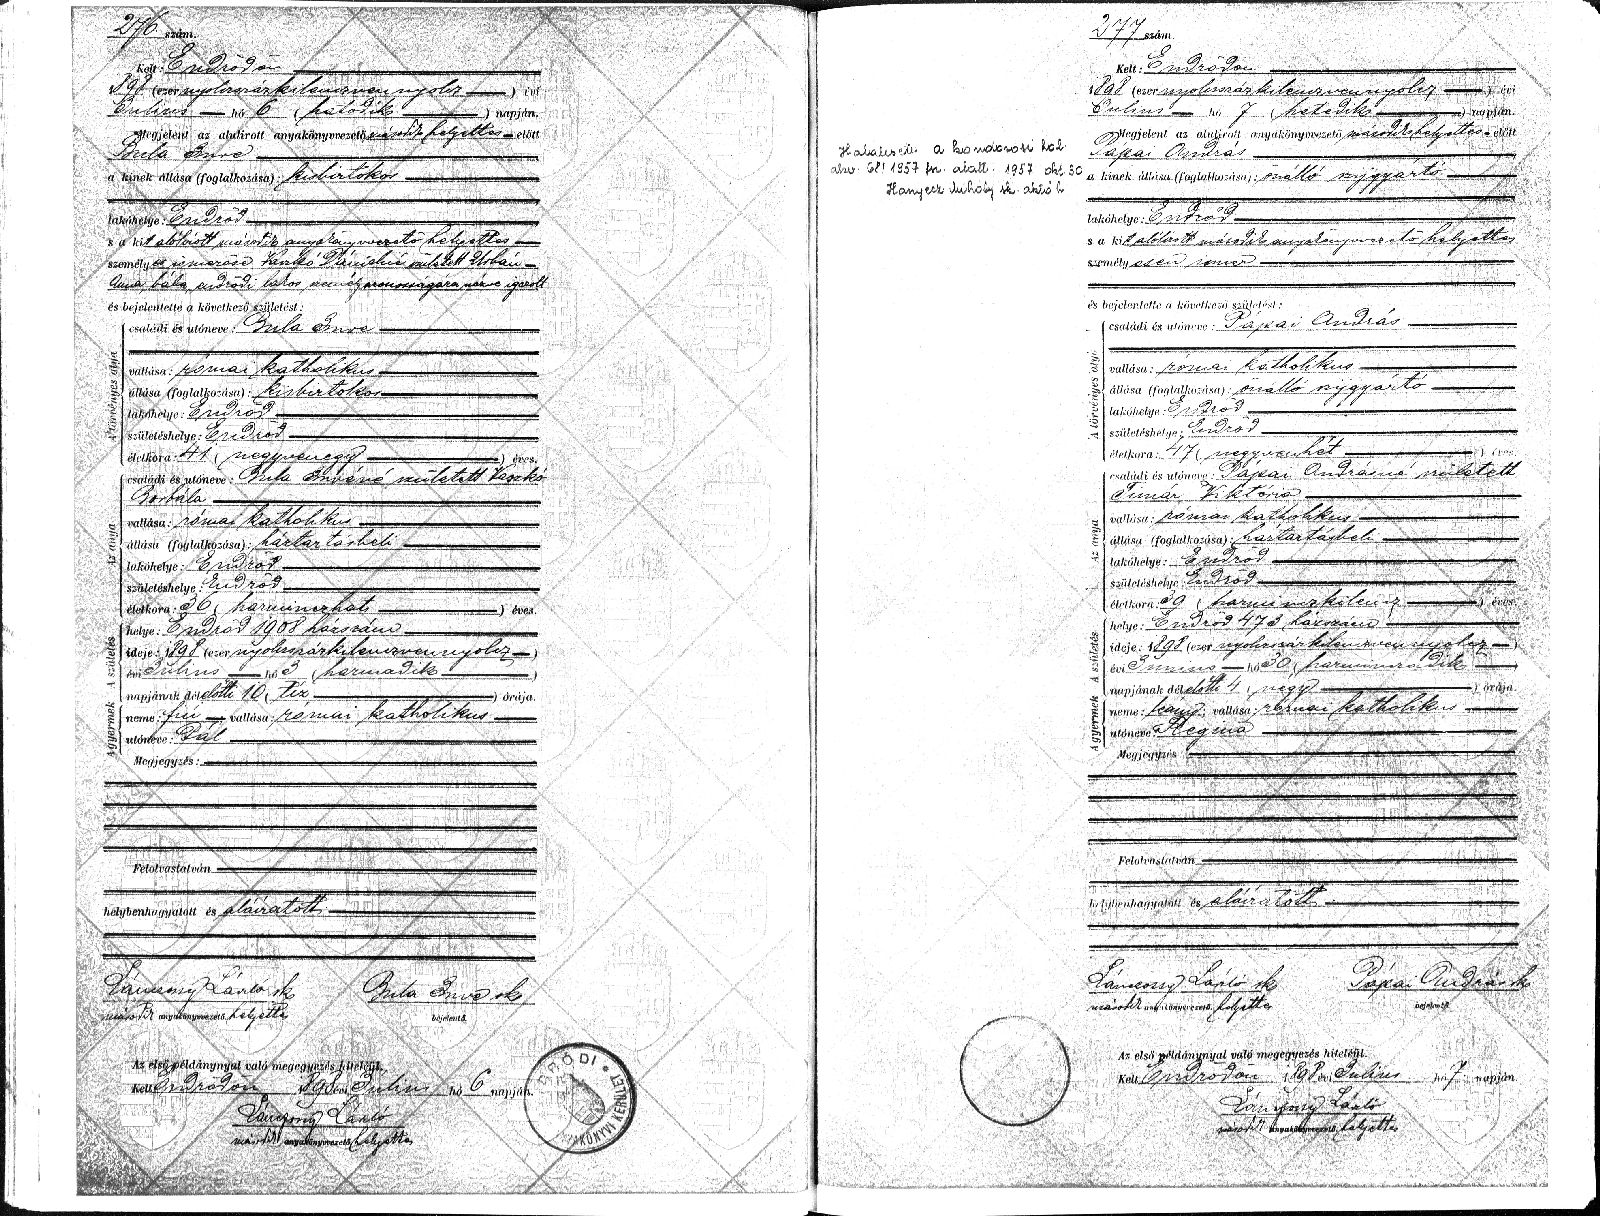 276. szám.
Kelt: Endrődön
1898 (ezernyolczszázkilenczvennyolcz) évi
Julius hó 6 (hatodik) napján.
Megjelent az alulirott anyakönyvezető második helyettes előtt
Bula Imre
a kinek állása (foglalkozása): kisbirtokos
lakóhelye: Endrőd
s a kit alólirott második anyakönyvvezető helyettes
személyes
Anna bába, endrődi lakos személyazonosságára nézve igazolt
és bejelentette a következő születést:
A törvényes atya
családi és utóneve: Bula Imre
vallása: római katholikus
állása (foglalkozása): kisbirtokos
lakóhelye: Endrőd
születéshelye: Endrőd
életkora: 41 (negyvenegy) éves.
Az anya
családi és utóneve: Bula Imréné született Vaszkó
Borbála
vallása: római katholikus
állása (foglalkozása): háztartásbeli
lakóhelye: Endrőd
születéshelye: Endrőd
életkora: 36 (harminczhat) éves.
A gyermek A születés
helye: Endrőd 1908 házszám
ideje: 1898 (ezernyolczszázkilenczvennyolcz)
évi Julius hó 3 (harmadik)
napjának délelőtti 10 (tíz) órája.
neme: fiú vallása: római katholikus
utóneve: Pál
Megjegyzés:
Felolvastatván
helybenhagyatott és aláiratott
Lánczony László sk Bula Imre sk
második anyakönyvvezető helyettes bejelentő.
Az első példánynyal való megegyezés hiteléül.
Kelt Endrődön 1898 évi Julius hó 6 napján.
Lánczony László
második anyakönyvvezető helyettes
277 szám.
Kelt: Endrődön
1898 (ezernyolczszázkilenczvennyolcz) évi
Julius hó 7 (hetedik) napján.
Megjelent az alulirott anyakönyvvezető második helyettes előtt
Pápai András
a kinek állása (foglalkozása): önálló szijgyártó
lakóhelye: Endrőd
s a kit alólirott második anyakönyvvezető helyettes
személyesen ismer
és bejelentette a következő születést:
A törvényes atya
családi és utóneve: Pápai András
vallása: római katholikus
állása (foglalkozása): önálló szijgyártó
lakóhelye: Endrőd
születéshelye: Endrőd
életkora: 47 (negyvenhét) éves.
Az anya
családi és utóneve: Pápai Andrásné született
Timár Viktória
vallása: római katholikus
állása (foglalkozása): háztartásbeli
lakóhelye: Endrőd
születéshelye: Endrőd
életkora: 39 (harminczkilencz) éves.
A gyermek A születés
helye: Endrőd 473 házszám
ideje: 1898 (ezernyolczszázkilenczvennyolcz)
évi Junius hó 30 (harminczadik)
napjának délelőtti 4 (négy) órája.
neme: leány; vallása: római katholikus
utóneve: Regina
Megjegyzés
Felolvastatván
helybenhagyatott és aláiratott
Lánczony László sk Pápai András sk
második anyakönyvvezető helyettes bejelentő.
Az első példánynyal való megegyezés hiteléül.
Kelt Endrődön 1898 évi Julius hó 7 napján.
Lánczony László
második anyakönyvvezető helyettes
a kondorosi hal.
1957 alatt. 1957 okt 30